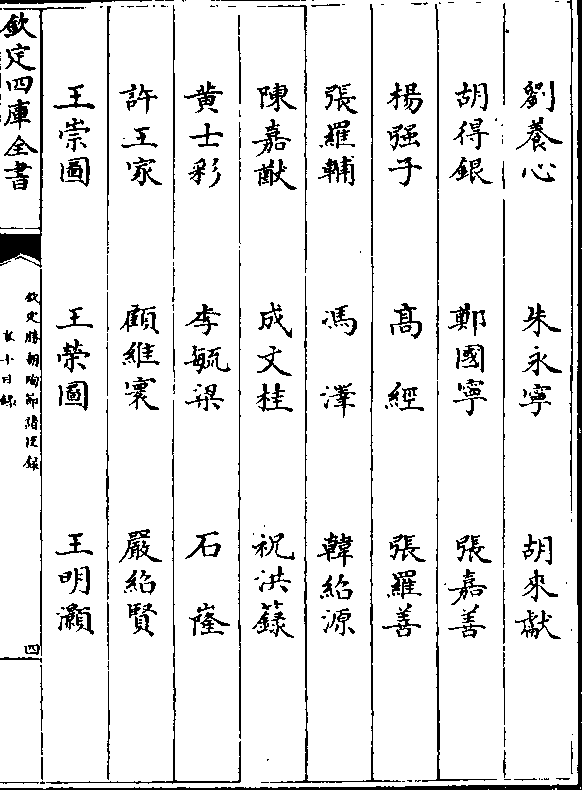 劉養心　朱永寧　胡來獻
胡得銀　鄭國寧　張嘉善
楊强子　髙　經　張羅善
張羅輔　馮　澤　韓紹源
陳嘉猷　成文桂　祝洪籙
黄士彩　李毓梁　石　隆
許王家　顧維寰　嚴紹賢
王崇圖　王榮圖　王明灝
欽定四庫全書
欽定勝朝殉節諸臣録
卷十目録
四